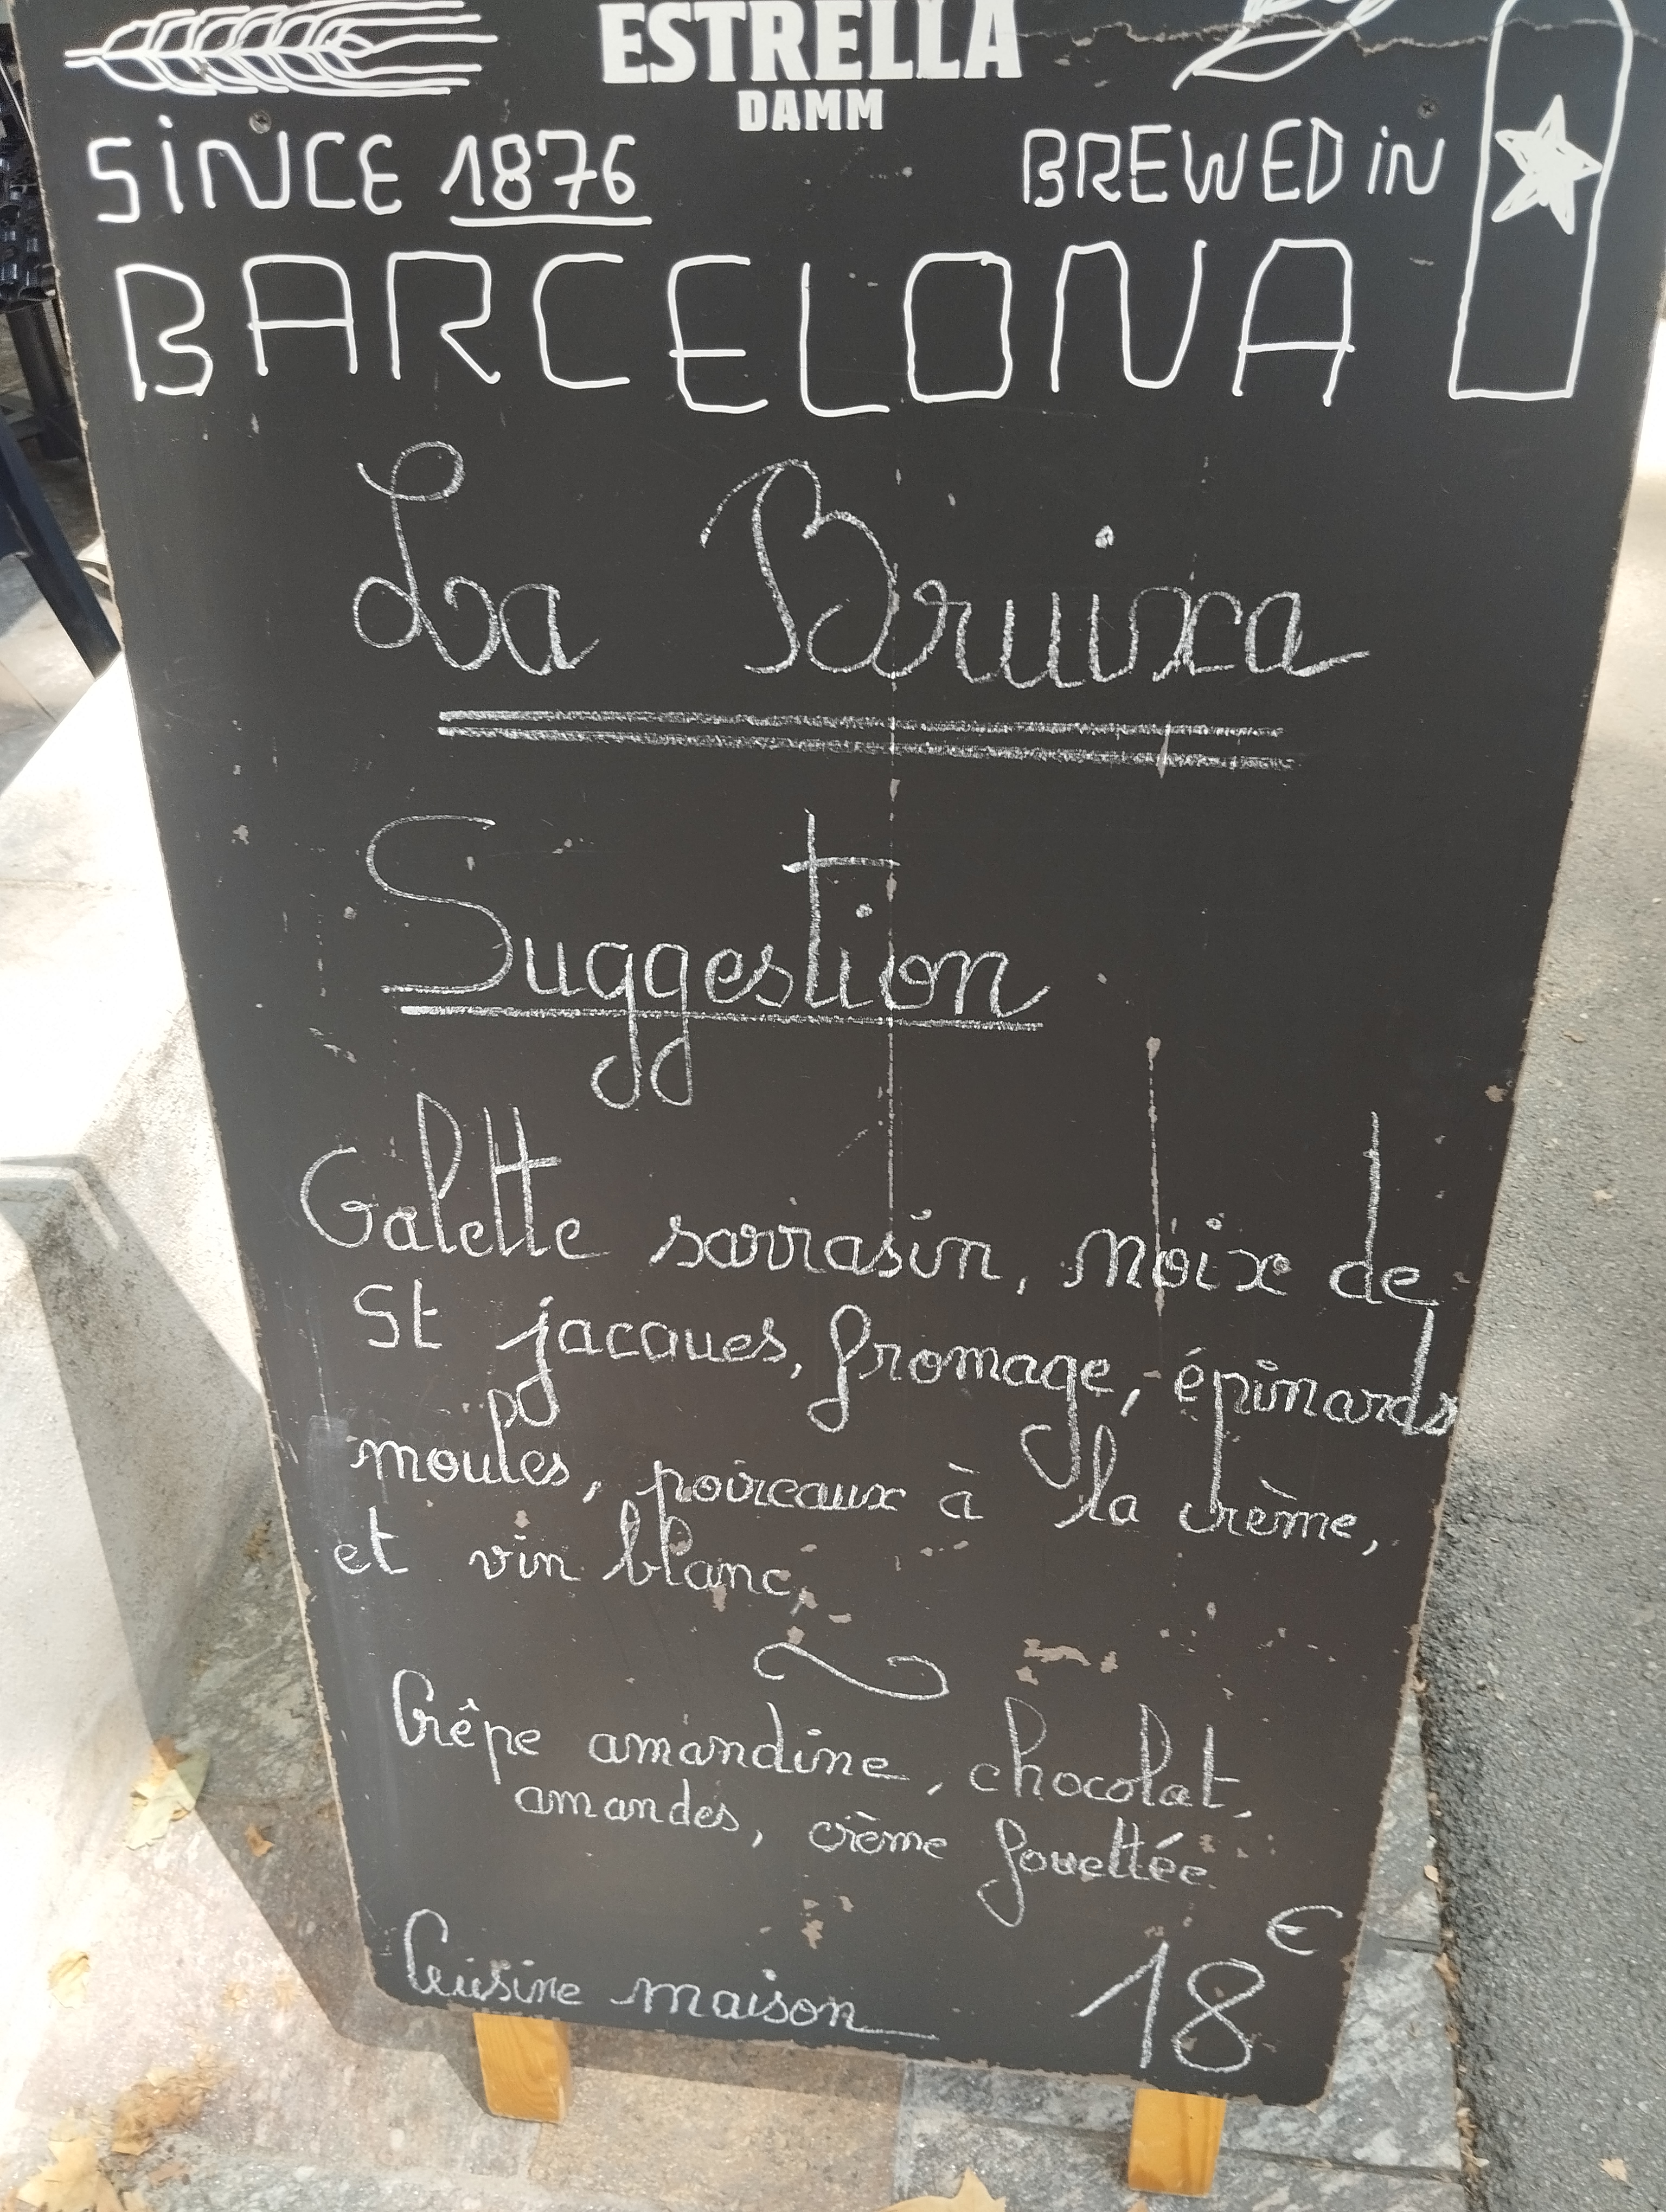 ESTRELLA
DAMM
SINCE 1876
BREWED iN
BARCELONA
La Bruixa
Suggestion
Galette sarrasin, noix de
St jacques, fromage, épinards
moules, poireaux à la crème,
et vin blanc,
Crêpe amandine, chocolat,
amandes, crème fouettée
Cuisine maison 18 €